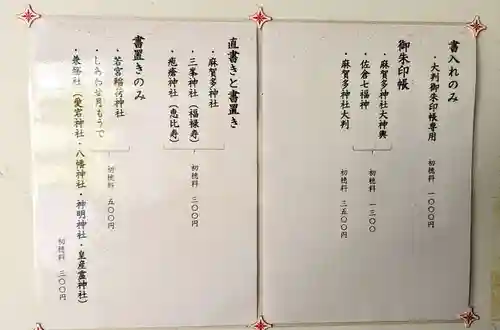 書入れのみ
・大判御朱印帳専用　初穂料　一〇〇〇円
御朱印帳
・麻賀多神社大神輿
・佐倉七福神　初穂料　一三〇〇
・麻賀多神社大判　初穂料　三五〇〇円
直書きと書置き
・麻賀多神社
・三峯神社（福禄寿）　初穂料　三〇〇円
・疱瘡神社（恵比寿）
書置きのみ
・若宮稲荷神社
・しあわせ月もうで　初穂料　五〇〇円
・兼務社（愛宕神社・八幡神社・神明神社・皇産霊神社）
初穂料　三〇〇円